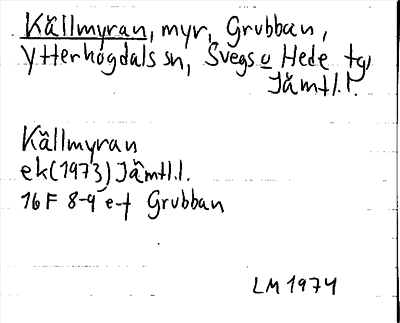 Källmyran, myr, Grubban,
Ytterhogdals sn, Svegs o Hede tg,
Jämtl.l.
Källmyran
ek(1973) Jämtl.l.
16F 8-9 e-f Grubban
LM 1974